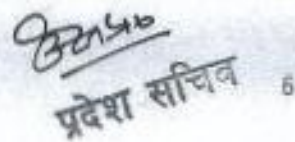 प्रदेश सचिव
6